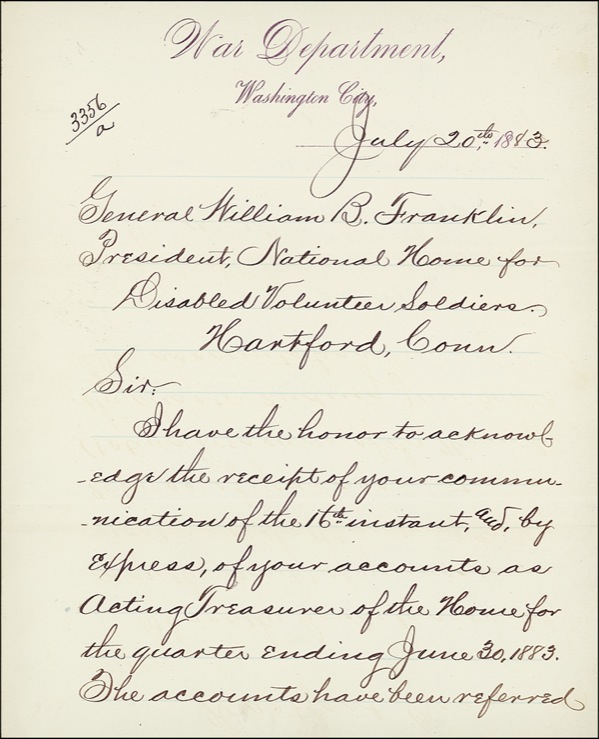 War Department,
Washington City,
3356
a
July 20th, 1883.
General William B. Franklin,
President, National Home for
Disabled Volunteer Soldiers.
Hartford, Conn.
Sir:
I have the honor to acknowl-
-edge the receipt of your commu-
-nication of the 16th instant, and, by
express, of your accounts as
Acting Treasurer of the Home for
the quarter ending June 30, 1883.
The accounts have been referred